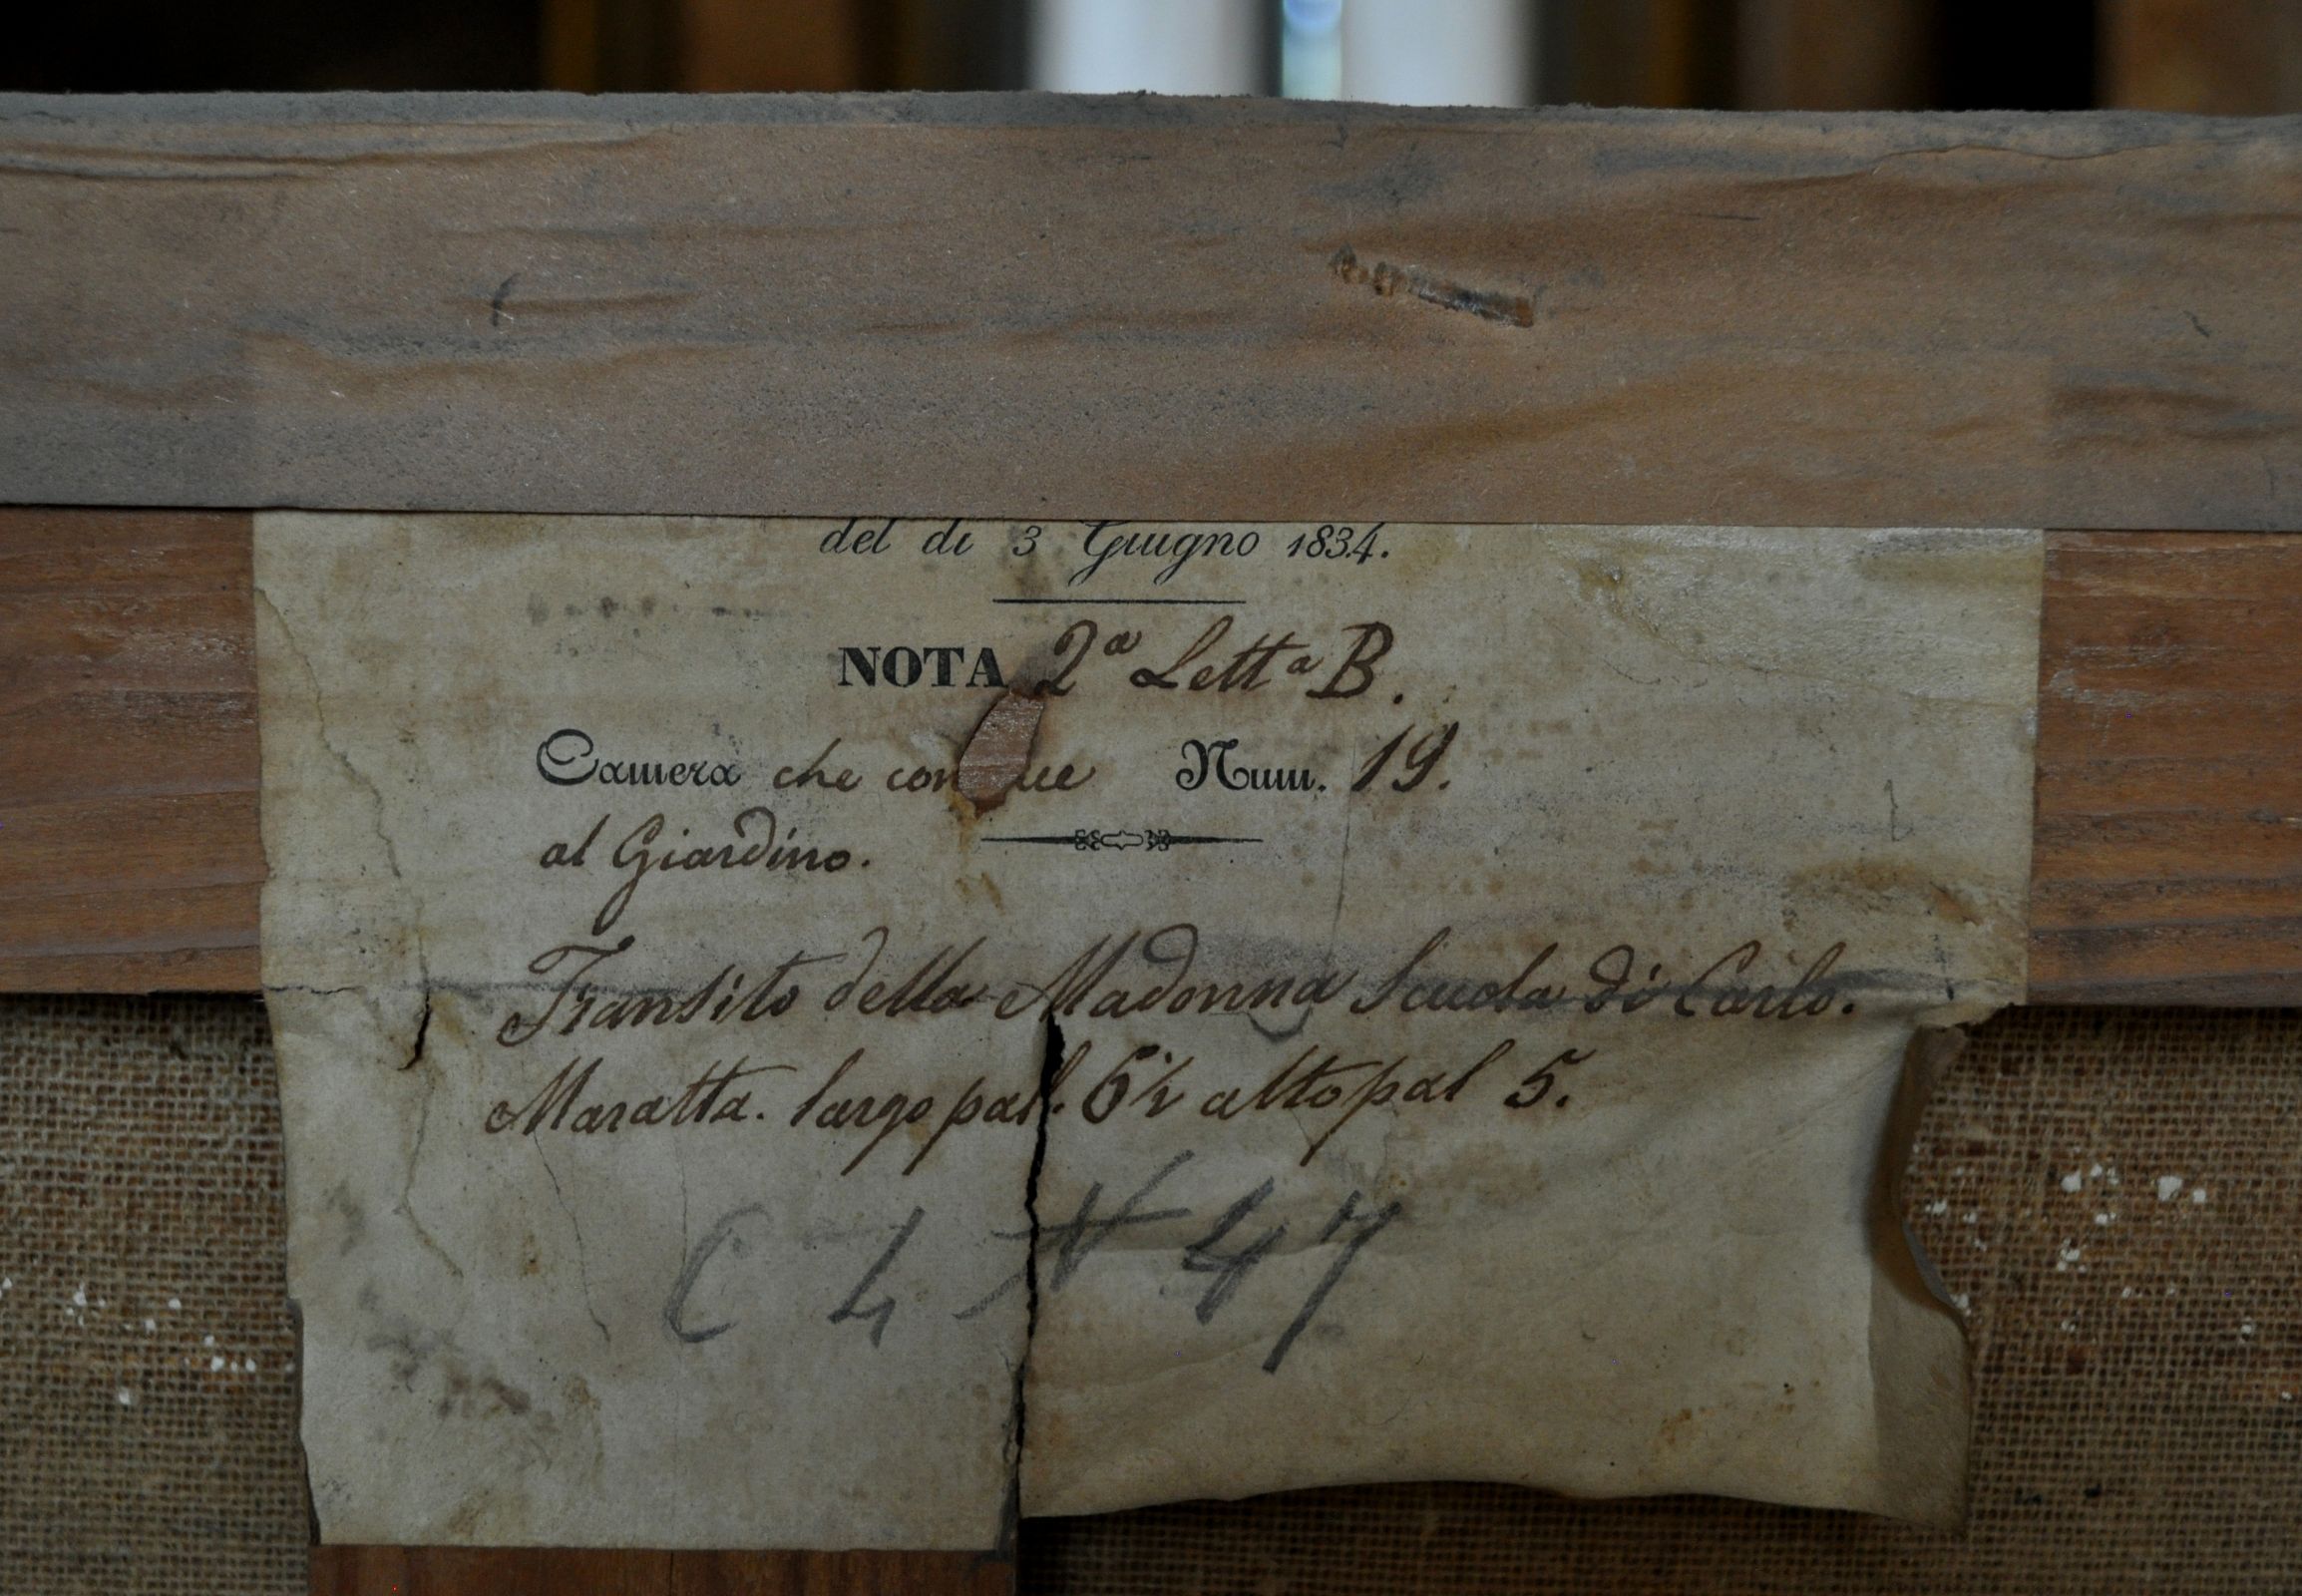 del di 3 Giugno 1834.
NOTA 2ª Lettª B.
Camera che con ue Num. 19.
al Giardino.
Transito della Madonna Scuola di Carlo.
Maratta. largo pal. 6½ alto pal 5.
C 4 N 47